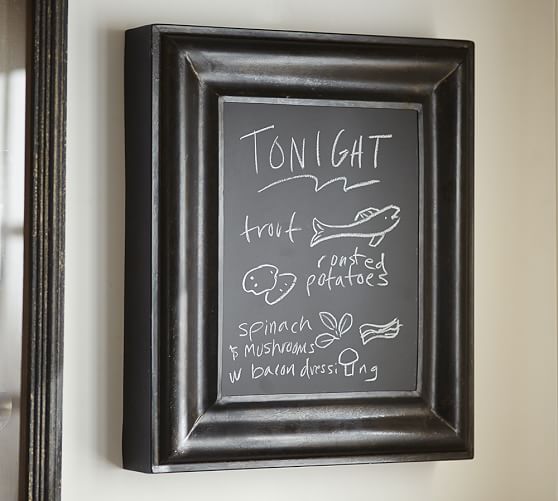 TONIGHT
trout
roasted
potatoes
spinach
& mushrooms
w bacon dressing